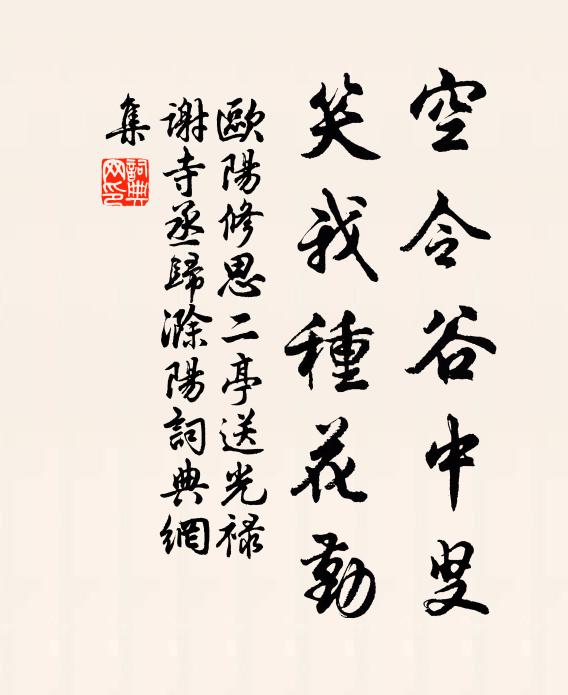 空令谷中叟
笑我種花勤
歐陽修思二亭送光祿
謝寺丞歸滁陽詞典網
集
詞典網印